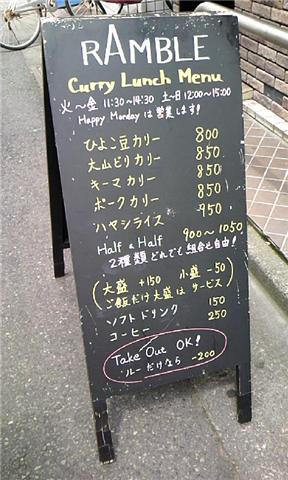 RAMBLE
Curry Lunch Menu
火〜金 11:30〜14:30 土〜日 12:00〜15:00
Happy Mondayは営業します!
ひよこ豆カリー 800
大山どりカリー 850
キーマカリー 850
ポークカリー 850
ハヤシライス 950
Half & Half 900〜1050
2種類どれでも組合せ自由!
大盛 +150 小盛 -50
ご飯だけ大盛はサービス
ソフトドリンク 150
コーヒー 250
Take Out OK!
ルーだけなら -200